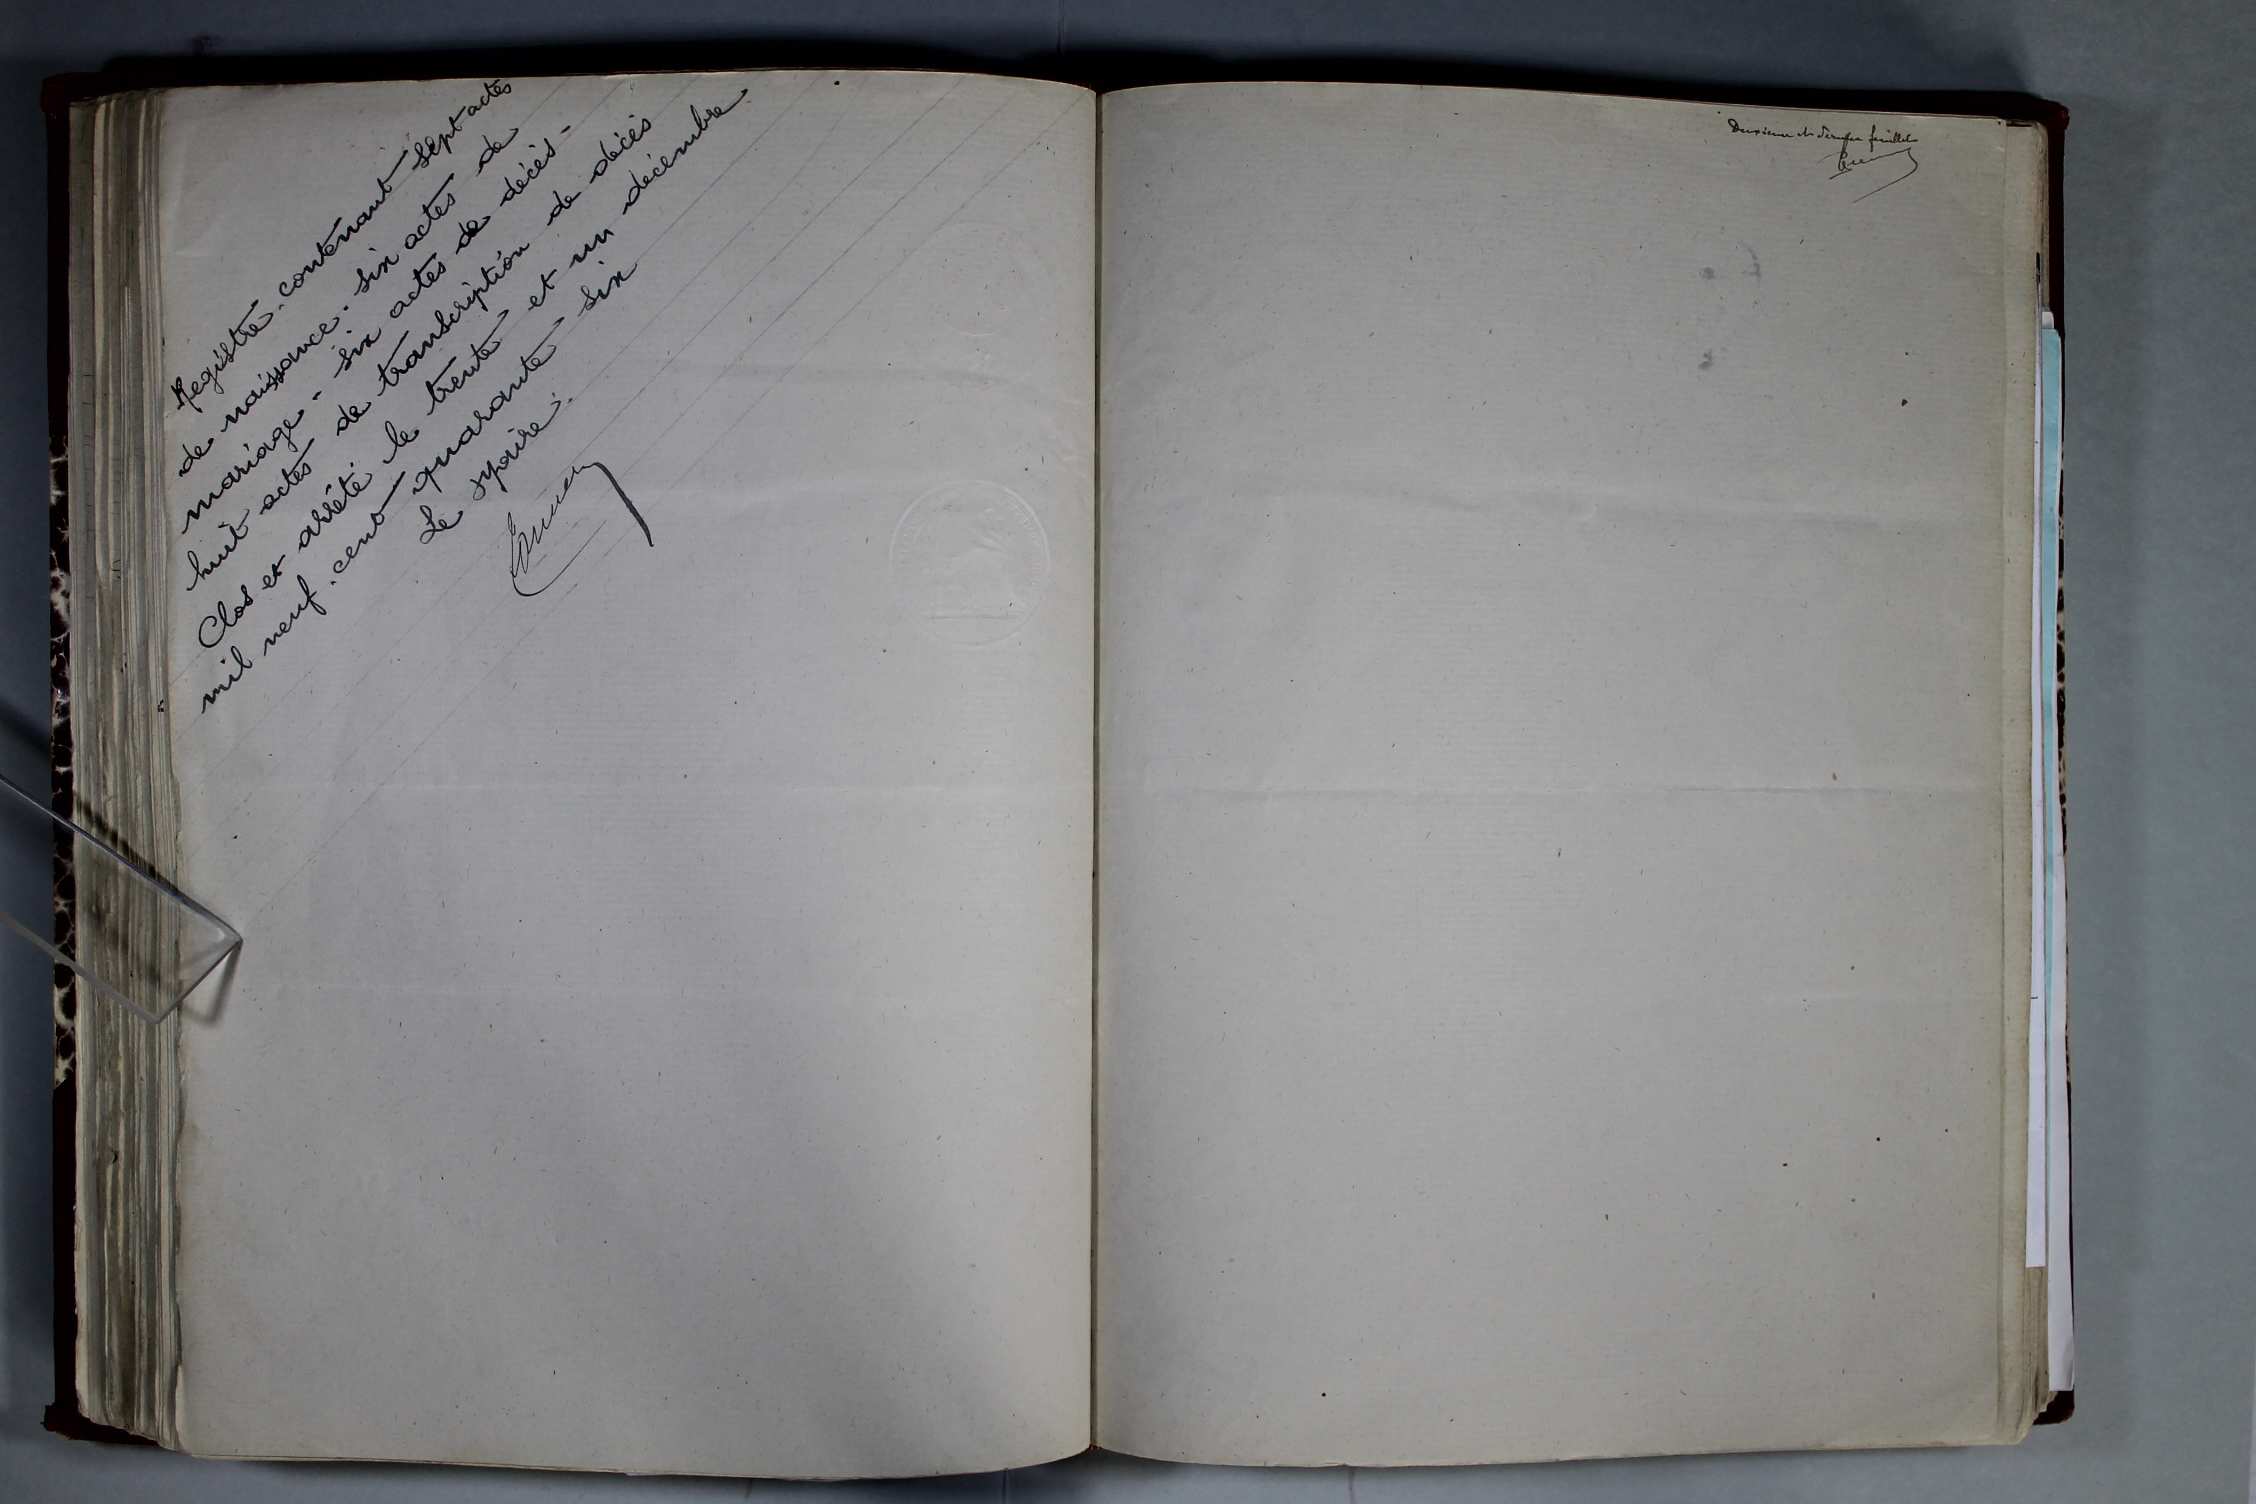 Registre. contenant sept actes
de naissance. six actes de
mariage - six actes de décès -
huit actes de transcription de décès
Clos et arrêté le trente et un décembre
mil neuf. cent quarante six
Le Maire.
Deuxième et dernier feuillet